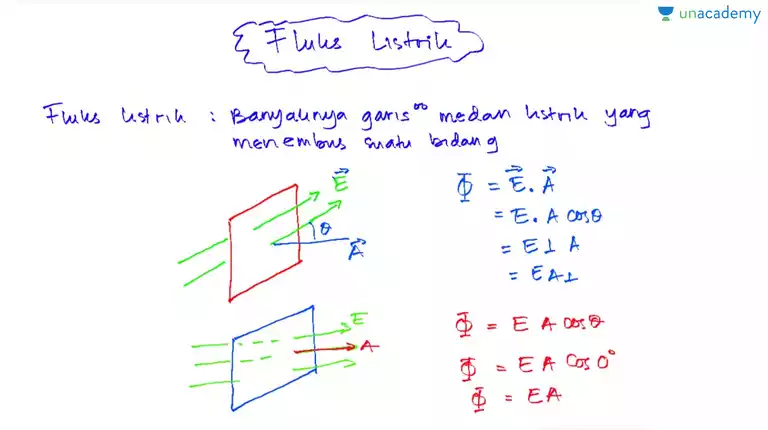 unacademy
Fluks listrik
Fluks listrik : Banyaknya garis°° medan listrik yang
menembus suatu bidang
E
θ
A
Φ = E . A
= E . A cos θ
= E⊥ A
= E A⊥
E
A
Φ = E A cos θ
Φ = E A cos 0°
Φ = EA